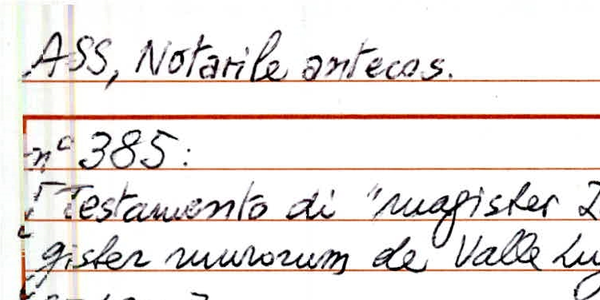 ASS, Notarile antecos.
n° 385:
Testamento di "magister
gister murorum de Valle Lug